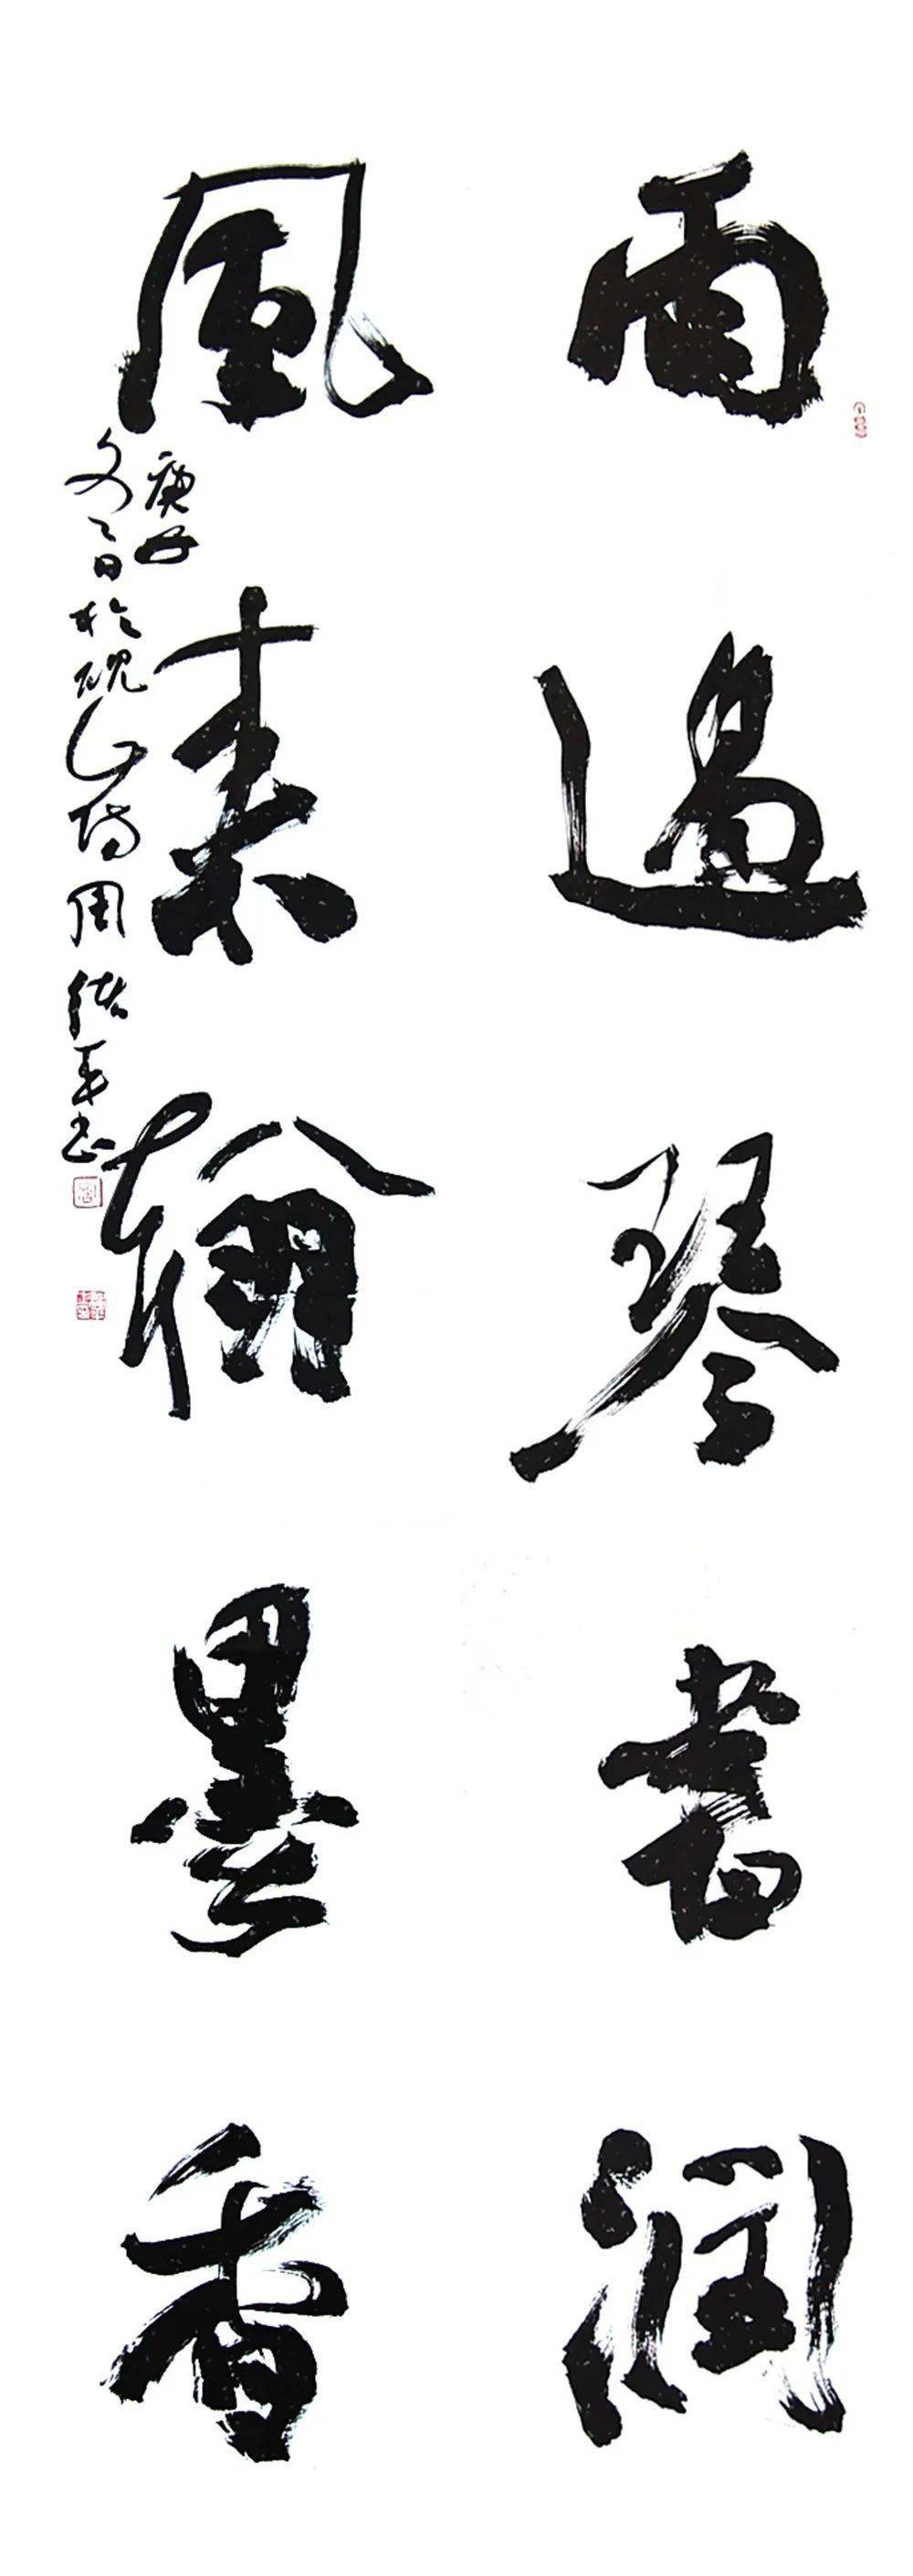 雨過琴書潤
風來翰墨香
庚子
文百於硯山陽周佐平書